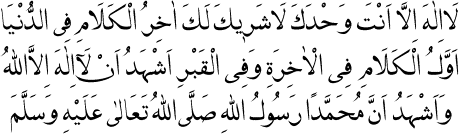 لَا اِلٰهَ اِلَّا اَنْتَ وَحْدَكَ لَا شَرِيْكَ لَكَ اٰخِرُ الْكَلَامِ فِى الدُّنْيَا
اَوَّلُ الْكَلَامِ فِى الْاٰخِرَةِ وَفِى الْقَبْرِ اَشْهَدُ اَنْ لَآ اِلٰهَ اِلَّا اللهُ
وَاَشْهَدُ اَنَّ مُحَمَّدًا رَسُولُ اللهِ صَلَّى اللهُ تَعَالٰى عَلَيْهِ وَسَلَّمَ